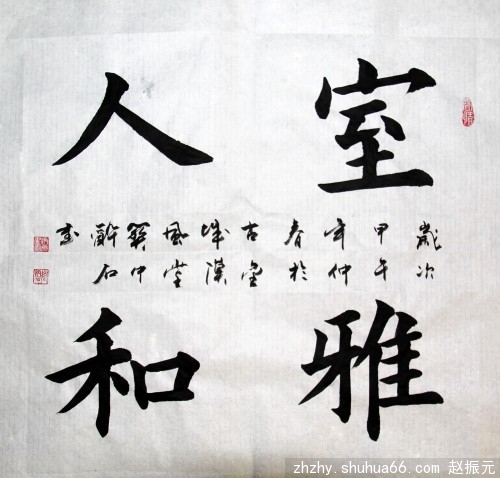 室雅
人和
歲次
甲午
年仲
春於
古
城漢
風堂
中
醉石
書
zhzhy.shuhua66.com 赵振元